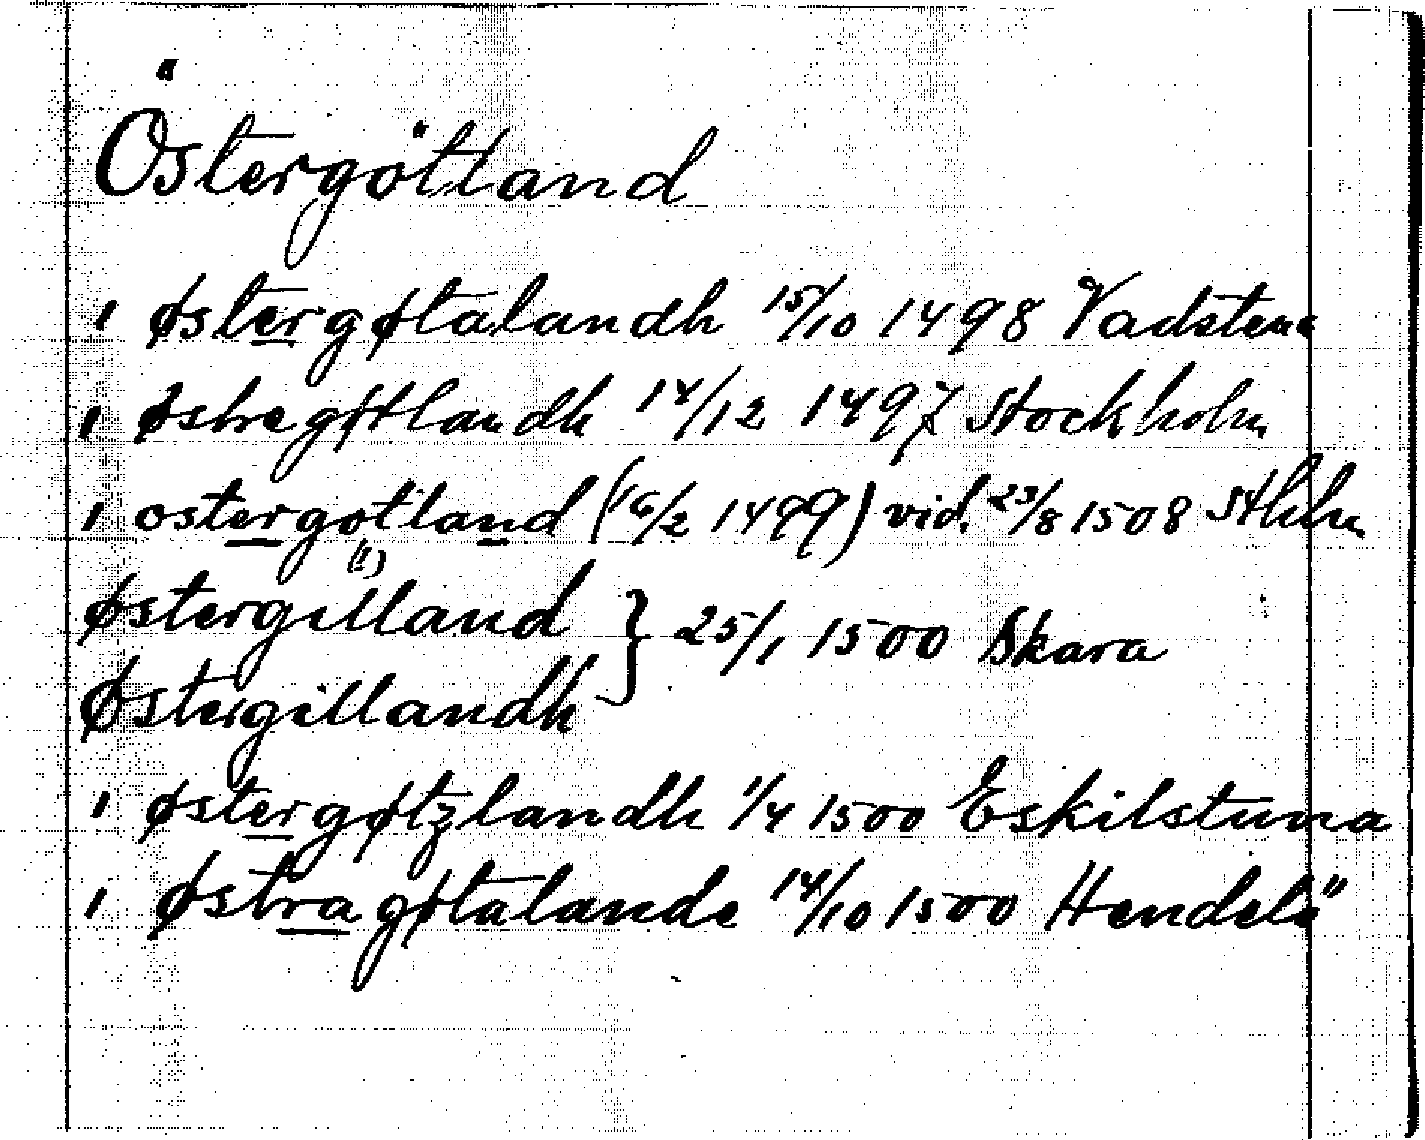 Östergötland
i østergøtalandh 15/10 1498 Vadstena
i østregøtlandh 14/12 1497 Stockholm
i ostergotland (16/2 1499) vid. 23/8 1508 Sthlm
(!)
Østergilland } 25/1 1500 Skara
Østergillandh
i østergøtzlandh 1/4 1500 Eskilstuna
i østragøtalande 14/10 1500 Hendelö